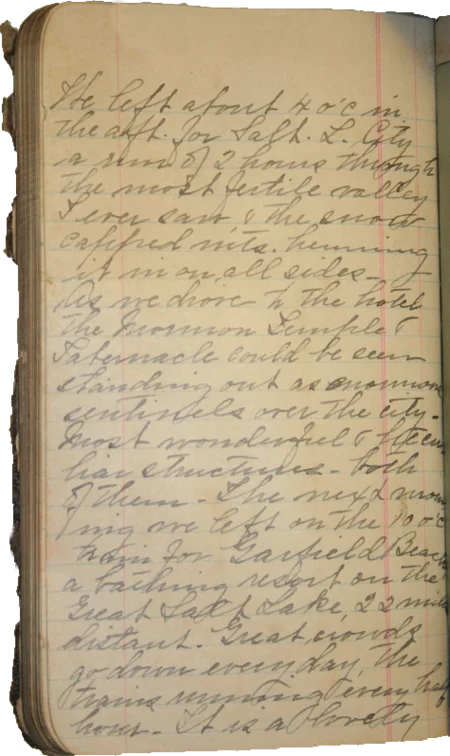 We left about 4 o'c in
the aft. for Salt. L. City
a run of 2 hours through
the most fertile valley
I ever saw, & the snow
capped mts. hemming
it in on all sides -
As we drove to the hotel
the Mormon Temple &
Tabernacle could be seen
standing out as enormous
sentinels over the city -
Most wonderful & pecu-
liar structures - both
of them - The next morn
ing we left on the 10 o'c
train for Garfield Beach
a bathing resort on the
Great Salt Lake, 22 miles
distant. Great crowds
go down every day, the
trains running every half
hour - It is a lovely